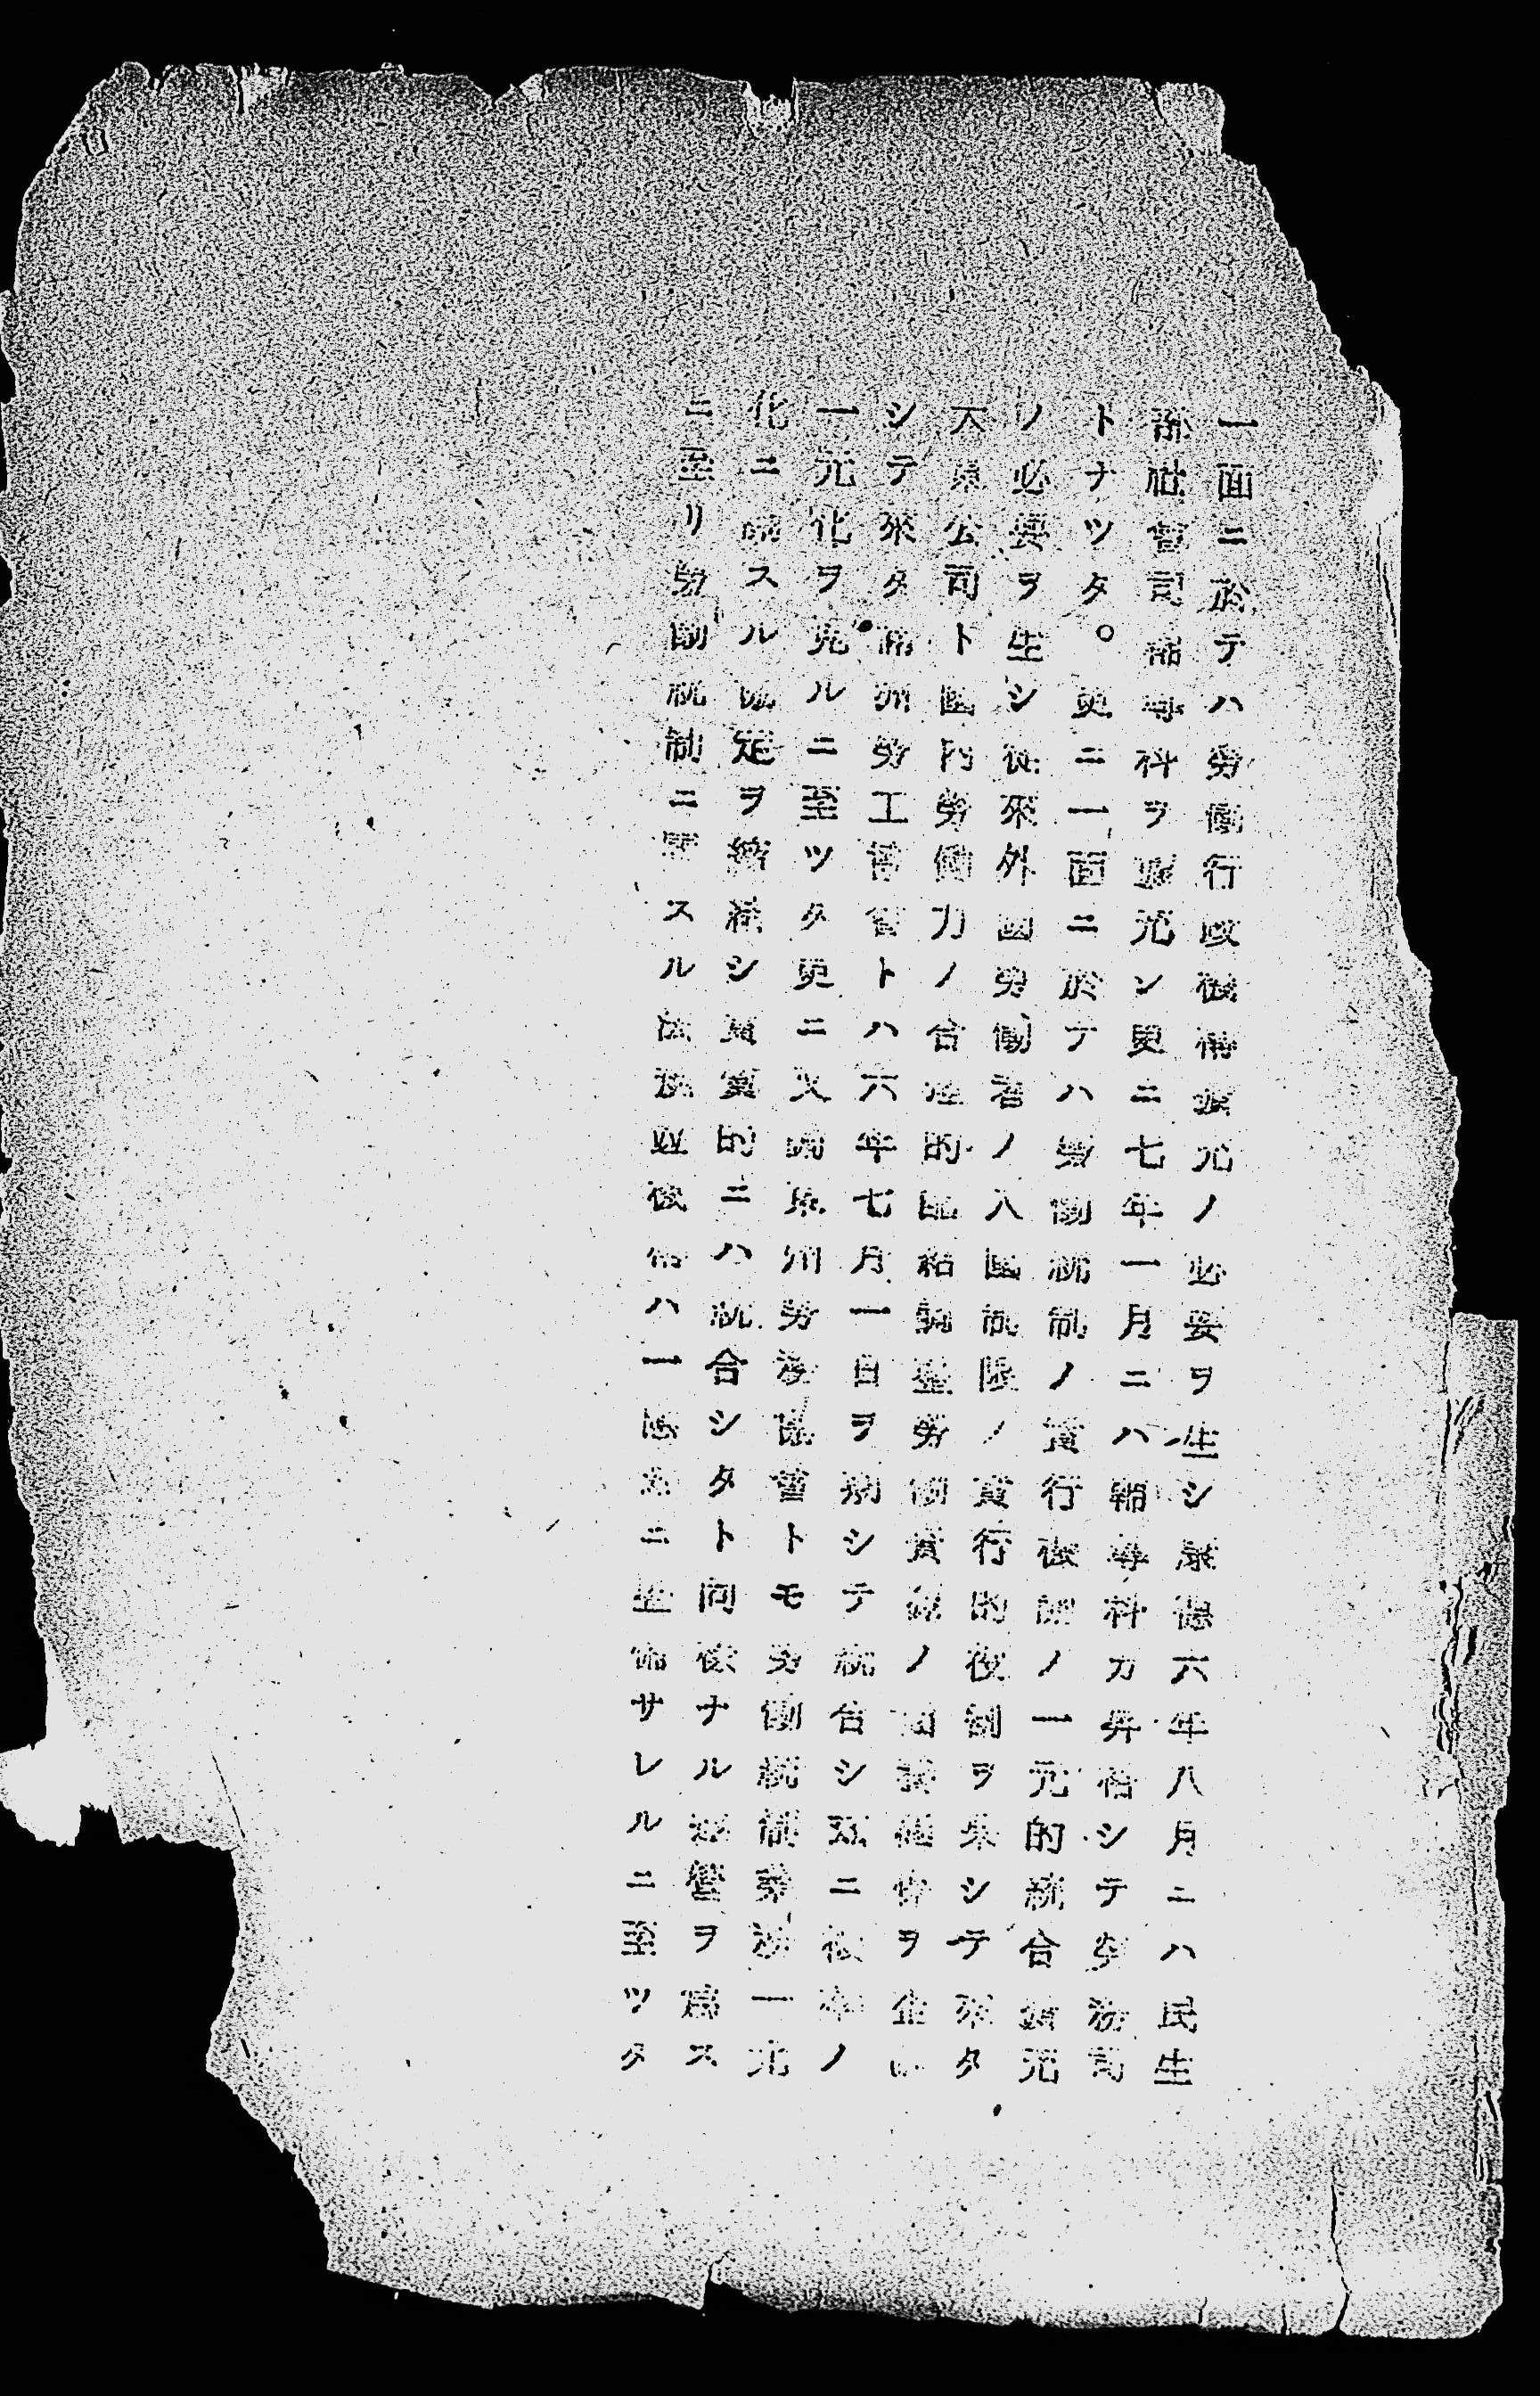 一面ニ於テハ勞働行政機構擴充ノ必要ヲ生シ康德六年八月ニハ民生
部社會司輔導科ヲ擴充シ更ニ七年一月ニハ輔導科カ昇格シテ勞務司
トナツタ。更ニ一面ニ於テハ勞働統制ノ實行機關ノ一元的統合擴充
ノ必要ヲ生シ從來外國勞働者ノ入國制限ノ實行的役割ヲ果シテ來タ
大東公司ト國内勞働力ノ合理的配給調整勞働資源ノ
シテ來タ滿洲勞工協會トハ六年七月一日ヲ期シテ統合シ茲ニ機構ノ
一元化ヲ見ルニ至ツタ更ニ又關東州勞務協會トモ勞働統制業務一元
化ニ關スル協定ヲ締結シ實質的ニハ統合シタト同樣ナル運營ヲ爲ス
ニ至リ勞働統制ニ關スル法規並機構ハ一應茲ニ整備サレルニ至ツタ